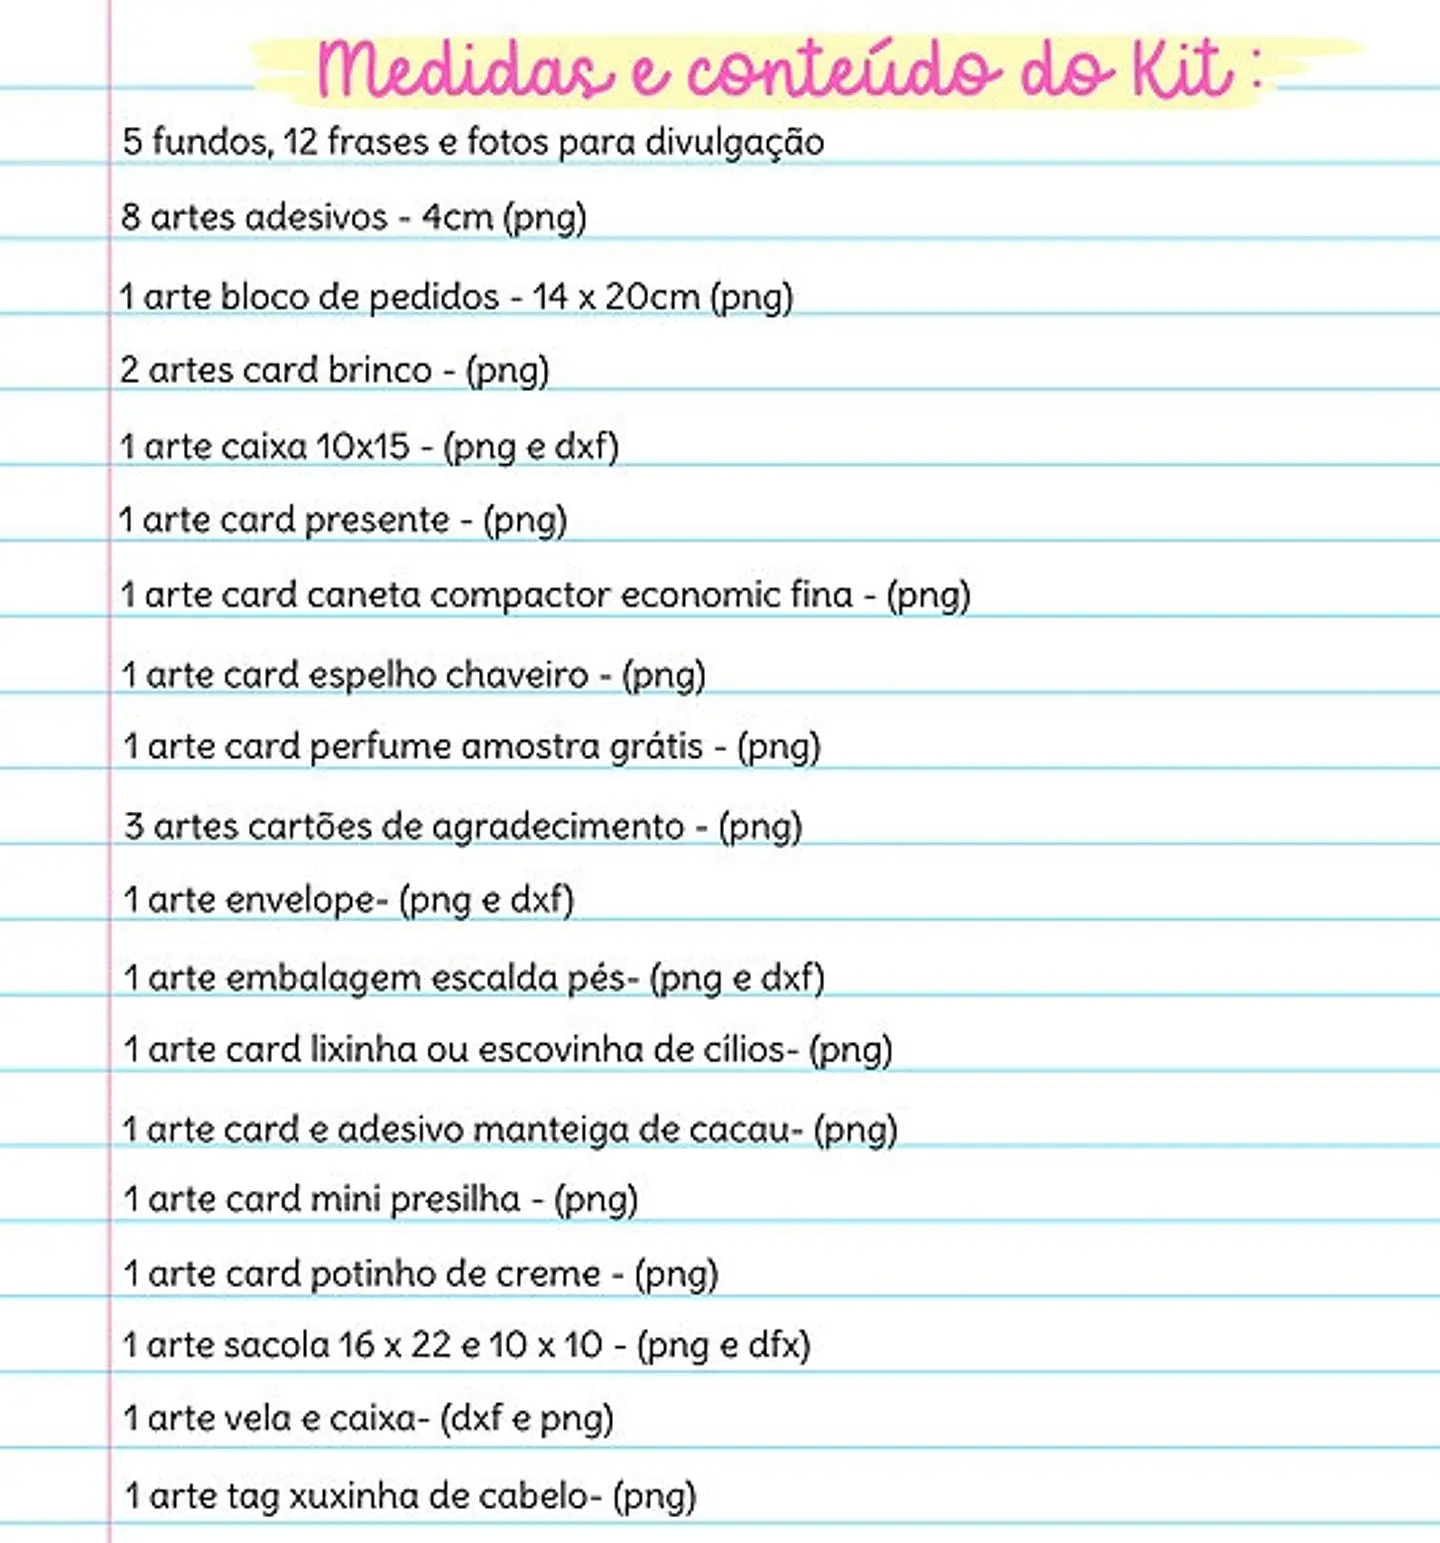 Medidas e conteúdo do Kit :
5 fundos, 12 frases e fotos para divulgação
8 artes adesivos - 4cm (png)
1 arte bloco de pedidos - 14 x 20cm (png)
2 artes card brinco - (png)
1 arte caixa 10x15 - (png e dxf)
1 arte card presente - (png)
1 arte card caneta compactor economic fina - (png)
1 arte card espelho chaveiro - (png)
1 arte card perfume amostra grátis - (png)
3 artes cartões de agradecimento - (png)
1 arte envelope- (png e dxf)
1 arte embalagem escalda pés- (png e dxf)
1 arte card lixinha ou escovinha de cílios- (png)
1 arte card e adesivo manteiga de cacau- (png)
1 arte card mini presilha - (png)
1 arte card potinho de creme - (png)
1 arte sacola 16 x 22 e 10 x 10 - (png e dfx)
1 arte vela e caixa- (dxf e png)
1 arte tag xuxinha de cabelo- (png)